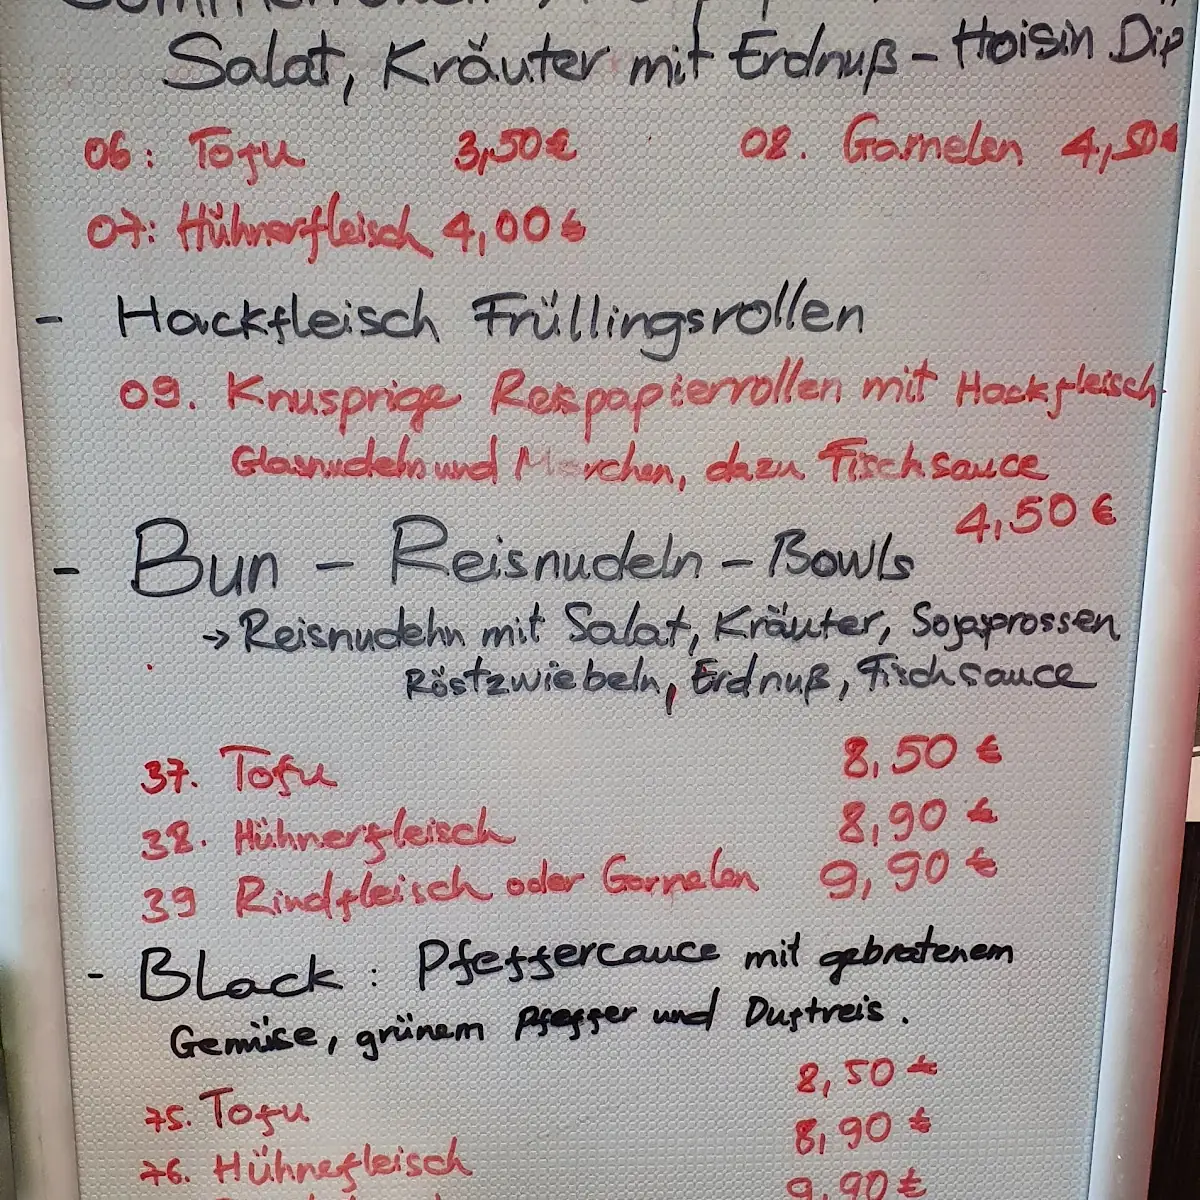 Salat, Kräuter mit Erdnuß - Hoisin Dip
06: Tofu 3,50€ 08. Garnelen 4,50€
07: Hühnerfleisch 4,00 €
- Hackfleisch Früllingsrollen
09. Knusprige Reispapierrollen mit Hackfleisch
Glasnudeln und Morchen, dazu Fischsauce
4,50 €
- Bun - Reisnudeln - Bowls
→ Reisnudehn mit Salat, Kräuter, Sojasprossen,
Röstzwiebeln, Erdnuß, Fischsauce
37. Tofu 8,50 €
38. Hühnerfleisch 8,90 €
39 Rindfleisch oder Garnelen 9,90 €
- Black: Pfeffercauce mit gebratenem
Gemüse, grünem Pfeffer und Duftreis.
75. Tofu 8,50 €
76. Hühnefleisch 8,90 €
9,90 €